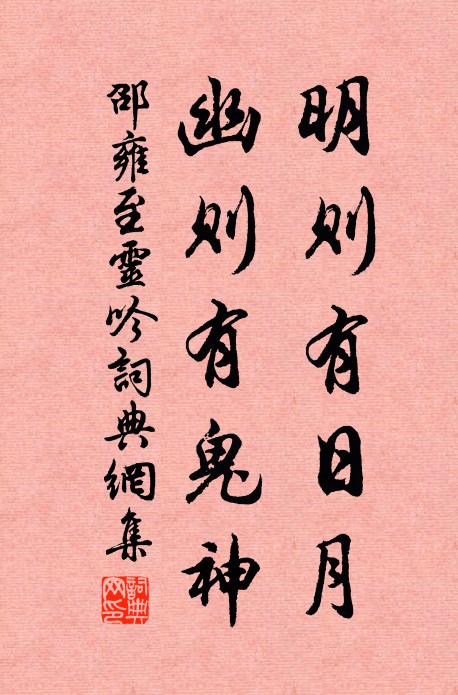 明则有日月
幽则有鬼神
邵雍至靈吟詞典網集
詞典
网印